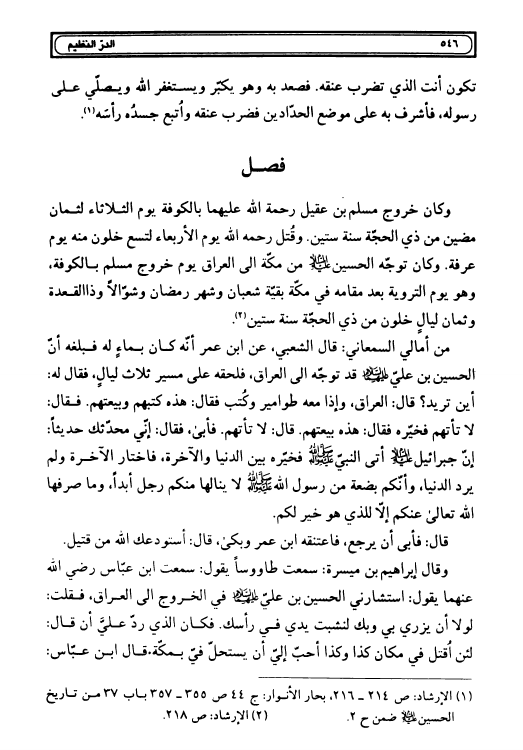 ٥٤٦ الدرّ النظيم
تكون أنت الذي تضرب عنقه. فصعد به وهو يكبّر ويستغفر الله ويصلّي على
رسوله، فأشرف به على موضع الحدّادين فضرب عنقه وأتبع جسدُه رأسَه(١).
فصل
وكان خروج مسلم بن عقيل رحمة الله عليهما بالكوفة يوم الثلاثاء لثمان
مضين من ذي الحجّة سنة ستين. وقُتل رحمه الله يوم الأربعاء لتسع خلون منه يوم
عرفة. وكان توجّه الحسين عليه السلام من مكّة الى العراق يوم خروج مسلم بالكوفة،
وهو يوم التروية بعد مقامه في مكّة بقيّة شعبان وشهر رمضان وشوّالاً وذاالقعدة
وثمان ليالٍ خلون من ذي الحجّة سنة ستين(٢).
من أمالي السمعاني: قال الشعبي، عن ابن عمر أنّه كان بماءٍ له فبلغه أنّ
الحسين بن عليّ عليهما السلام قد توجّه الى العراق، فلحقه على مسير ثلاث ليالٍ، فقال له:
أين تريد؟ قال: العراق، وإذا معه طوامير وكُتب فقال: هذه كتبهم وبيعتهم. فقال:
لا تأتهم فخيّره فقال: هذه بيعتهم. قال: لا تأتهم. فأبىٰ، فقال: إنّي محدّثك حديثاً:
إنّ جبرائيل عليه السلام أتى النبيّ صلى الله عليه وآله فخيّره بين الدنيا والآخرة، فاختار الآخرة ولم
يرد الدنيا، وأنّكم بضعة من رسول الله صلى الله عليه وآله لا ينالها منكم رجل أبداً، وما صرفها
الله تعالىٰ عنكم إلّا للذي هو خير لكم.
قال: فأبى أن يرجع، فاعتنقه ابن عمر وبكىٰ، قال: أستودعك الله من قتيل.
وقال إبراهيم بن ميسرة: سمعت طاووساً يقول: سمعت ابن عبّاس رضي الله
عنهما يقول: استشارني الحسين بن عليّ عليهما السلام في الخروج الى العراق، فقلت:
لولا أن يزري بي وبك لنشبت يدي في رأسك. فكان الذي ردّ عليَّ أن قال:
لئن أُقتل في مكان كذا وكذا أحبّ إليّ أن يستحلّ فيّ بمكّة. قال ابن عبّاس:
(١) الإرشاد: ص ٢١٤ ـ ٢١٦، بحار الأنوار: ج ٤٤ ص ٣٥٥ ـ ٣٥٧ باب ٣٧ من تاريخ
الحسين عليه السلام ضمن ح ٢. (٢) الإرشاد: ص ٢١٨.